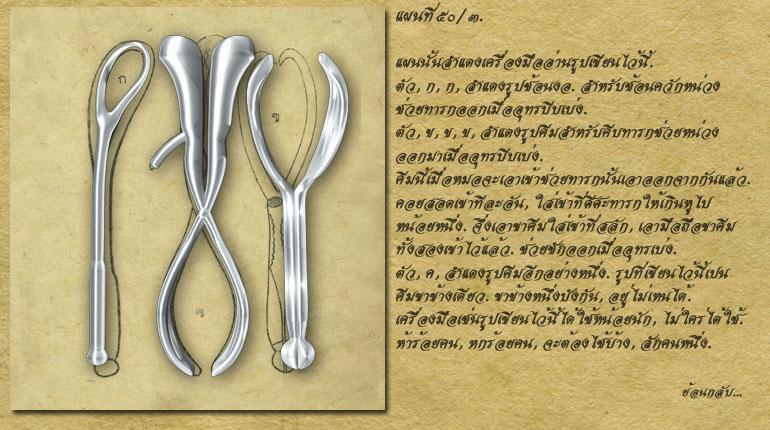 แผนที่ ๕๐/ ๓.
แผนนั้นสำแดงเครื่องมืออ่านรูปเขียนไว้นี้.
ตัว, ก, ก, สำแดงรูปช้อนงอ. สำหรับช้อนควักหน่วง
ช่วยทารกออกเมื่ออุทรบีบเบ่ง.
ตัว, ข, ข, ข, สำแดงรูปคีมสำหรับคีบทารกช่วยหน่วง
ออกมาเมื่ออุทรบีบเบ่ง.
คีมนี้เมื่อหมอจะเอาเข้าช่วยทารกนั้นเอาออกจากกันแล้ว.
คอยสอดเข้าทีละอัน, ใส่เข้าที่ศีศะทารกให้เกินหูไป
หน้อยหนึ่ง. จึ่งเอาขาคีมใส่เข้าที่สลัก, เอามือถือขาคีม
ทั้งสองเข้าไว้แล้ว. ช่วยชักออกเมื่ออุทรเบ่ง.
ตัว, ค, สำแดงรูปคีมอีกอย่างหนึ่ง. รูปที่เขียนไว้นี้เปน
คีมขาข้างเดียว. ขาข้างหนึ่งบังกัน, อยู่ไม่เหนได้.
เครื่องมือเช่นรูปเขียนไว้นี้ได้ใช้หน้อยนัก, ไม่ใคร่ได้ใช้.
ห้าร้อยคน, หกร้อยคน, จะต้องใช้บ้าง, สักคนหนึ่ง.
ย้อนกลับ...
ก
ข